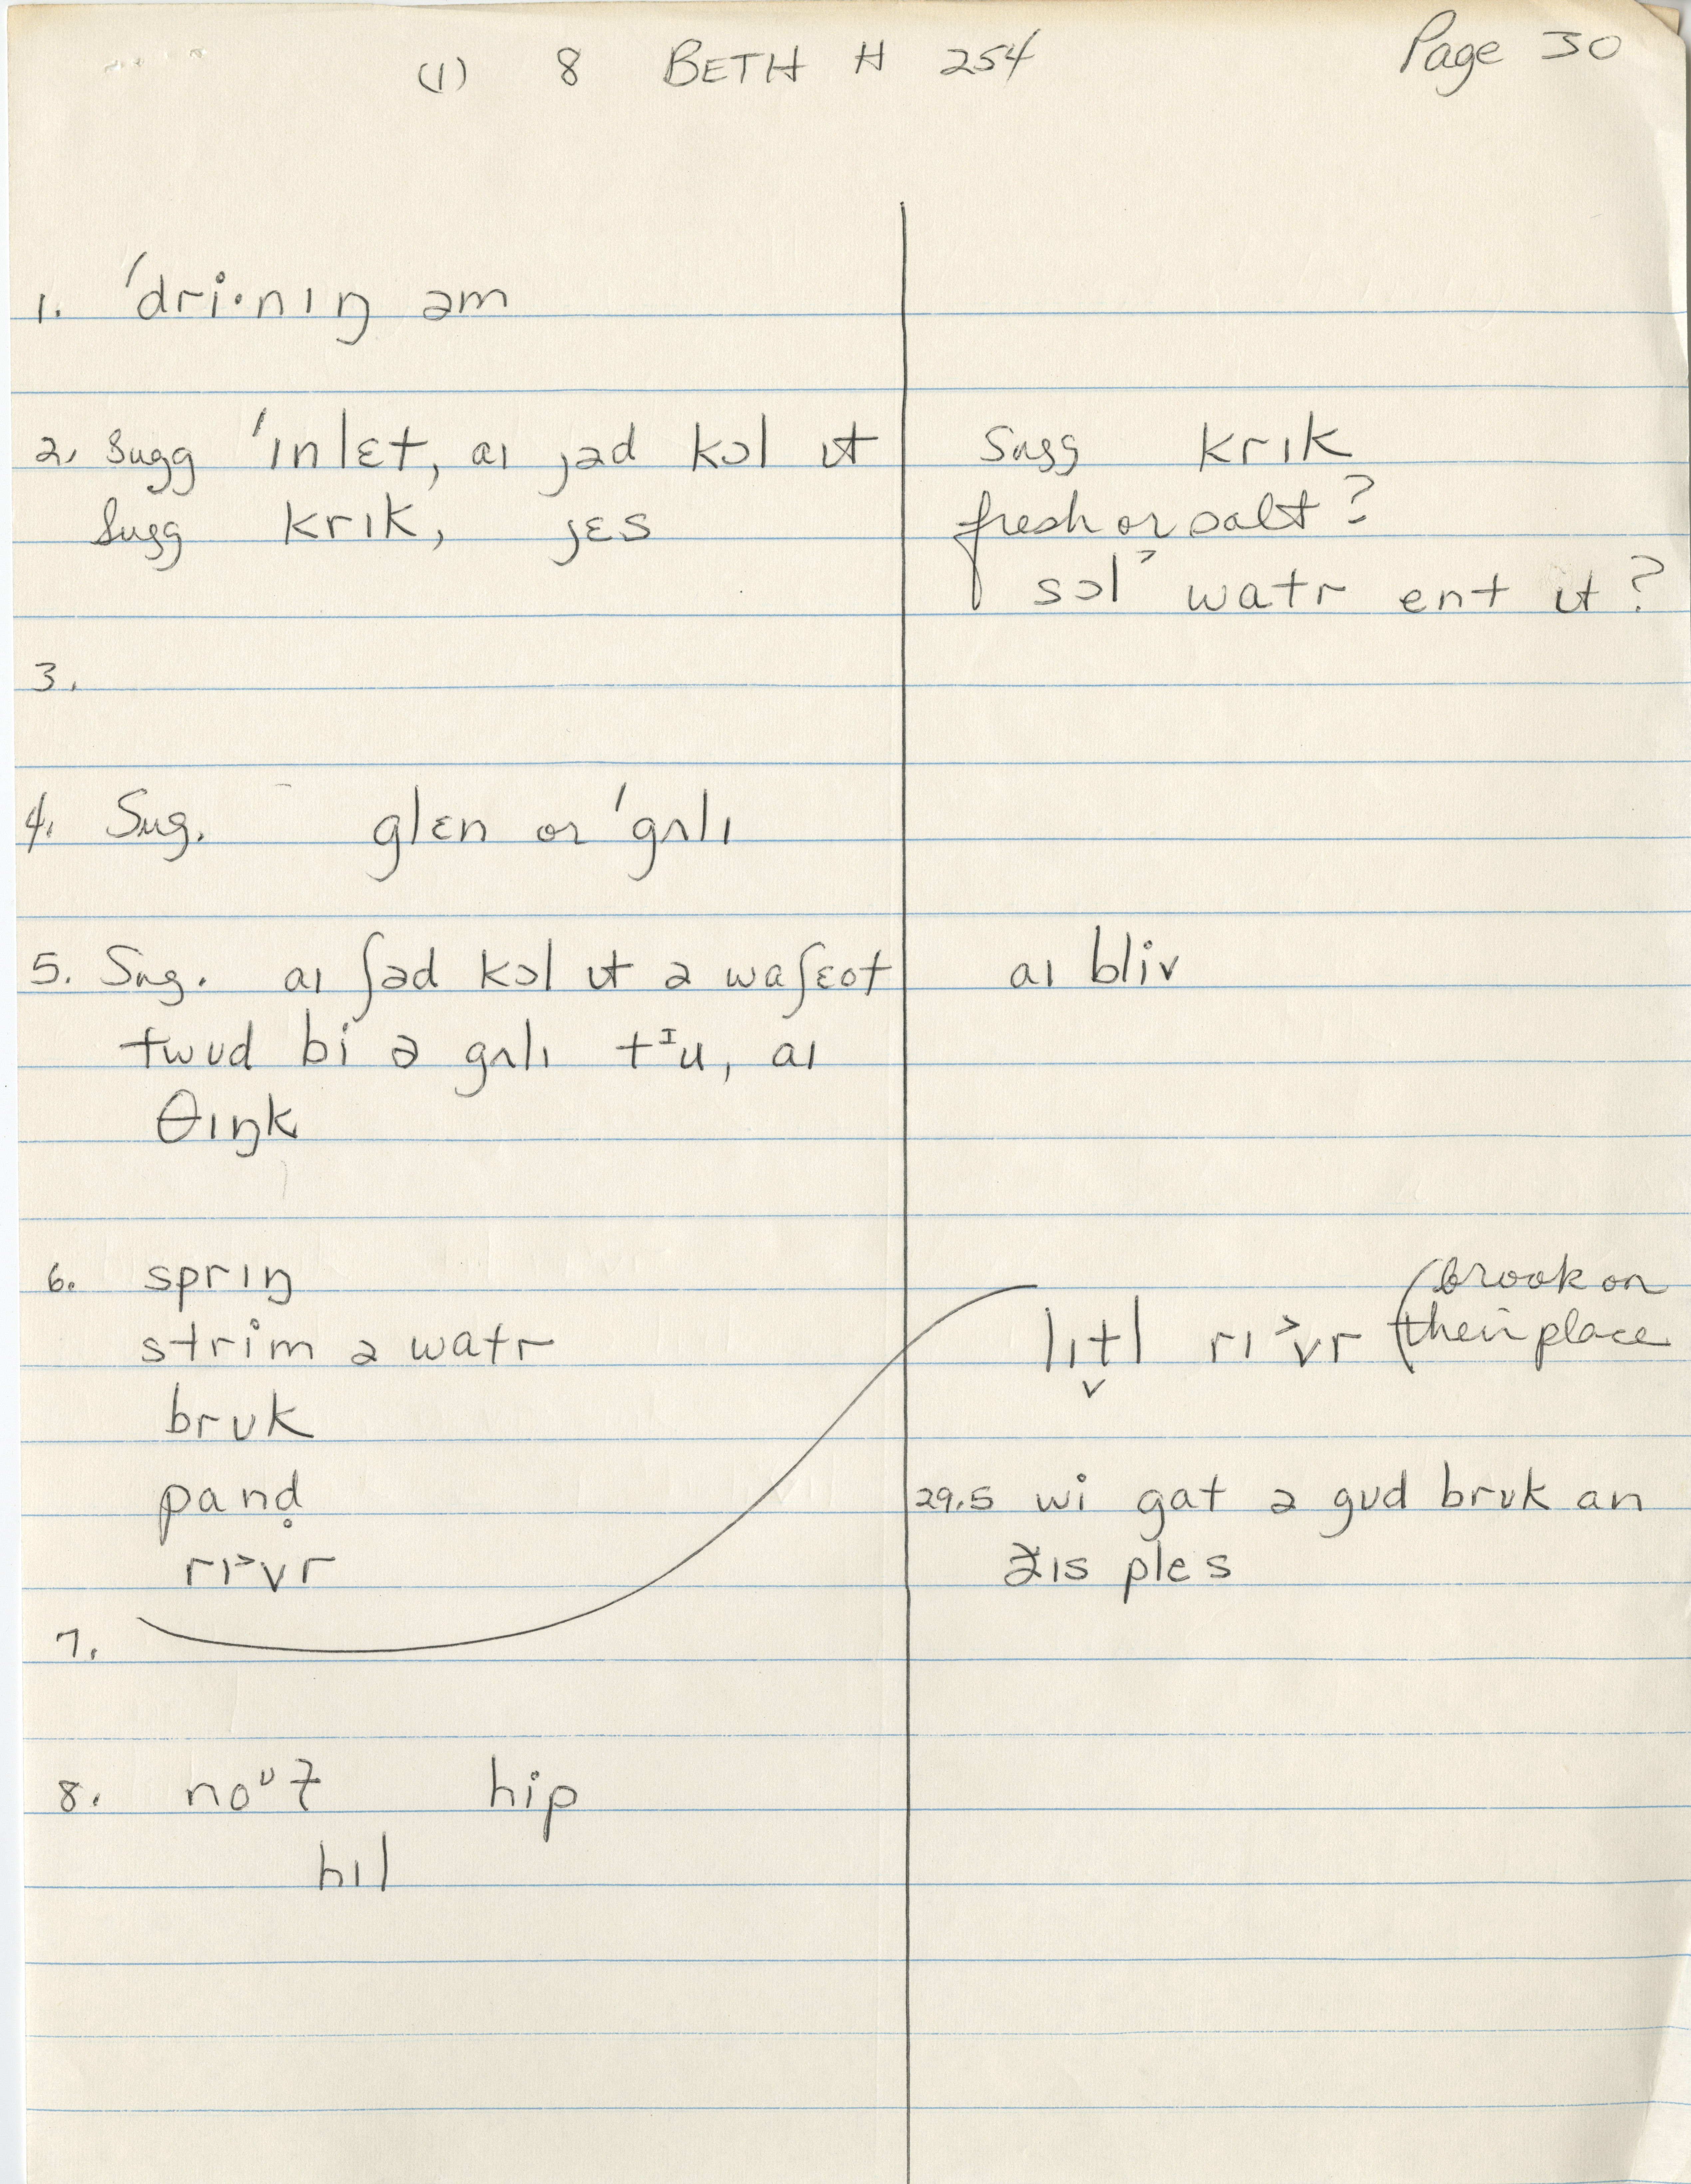 (1) 8 BETH H 254 Page 30
1. 'dri·nɪŋ əm
2. Sugg 'ɪnlɛt, aɪ ȷəd kɔl ɪt
Sugg krɪk, jɛs
Sugg krɪk
fresh or salt?
sɔl˃ watr ent ɪt?
3.
4. Sug. glɛn or 'gʌlɪ
5. Sug. aɪ ʃəd kɔl ɪt ə waʃɛot
twʊd bi ə gʌlɪ tᶦu, aɪ
θɪŋk
aɪ bliv
6. sprɪŋ
strim ə watr
brʊk
pand̥
rɪ˃vr
lɪt̬l rɪ˃vr (brook on
their place
29.5 wi gat ə gʊd brʊk an
ðɪs ples
7.
8. noᶷł hip
hɪl